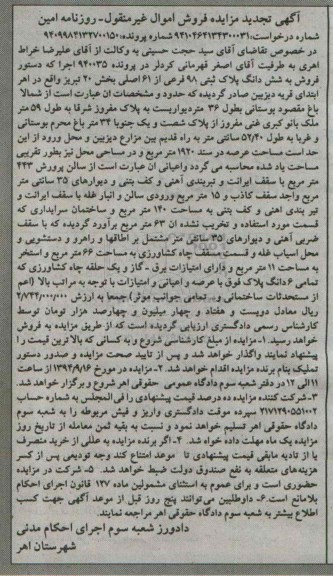 آگهی تجدید مزایده فروش اموال غیرمنقول-روزنامه امین
شماره درخواست: ۹۴۱۰۴۶۴۱۳۴۳۰۰۰۳۱ شماره پرونده: ۹۴۰۹۹۸۴۱۳۲۷۰۰۱۵۰
در خصوص تقاضای آقای سید حجت حسینی به وکالت از آقای علیرضا خراط
اهری به طرفیت آقای اصغر قهرمانی کردلر در پرونده ۹۴۰۰۳۵ اجرا که دستور
فروش به شش دانگ پلاک ثبتی ۹۸ فرعی از ۶۱ اصلی بخش ۲۰ تبریز واقع در اهر
ابتدای قریه دیزبین صادر گردیده که حدود و مشخصات آن عبارت است از شمالا
باغ مقصود بوستانی بطول ۳۶ متر دیواریست به پلاک مفروز شرقا به طول ۵۹ متر
ملک بانو کبری غنی مفروز از پلاک شصت و یک جنوبا ۳۴ متر باغ محرم بوستانی
و غربا به طول ۵۲/۴۰ سانتی متر به راه قدیم بین مزارع دیزبین و محل ورود از این
حد است مساحت عرصه در سند ۱۹۲۰ متر مربع و در مساحی محل نیز بطور تقریبی
مساحت یاد شده محاسبه می گردد واعیانی آن عبارت است از سالن پرورش ۴۴۳
متر مربع با سقف ایرانت و تیربندی آهنی و کف بتنی و دیوارهای ۳۵ سانتی متر
مربع واجد سقف کاذب و ۱۵ متر مربع ورودی سالن و انبار غله با سقف ایرانت و
تیر بندی اهنی و کف بتنی به مساحت ۱۴۰ متر مربع و ساختمان سرایداری که
قسمت مورد استفاده و تخریب نشده آن ۶۳ متر مربع برآورد گردیده که با سقف
ضربی آهنی و دیوارهای ۳۵ سانتی متر مشتمل بر اطاقها و راهرو و دستشویی و
محل آسیاب غله و قسمت سقف چاه کشاورزی به مساحت ۶۶ متر مربع و استخر
به مساحت ۱۱ متر مربع و دارای امتیازات برق - گاز و یک حلقه چاه کشاورزی که
تمامی ۶ دانگ پلاک فوق با عرصه و اعیانی و امتیازات با توجه به مراتب بالا (اعم
از مستحدثات ساختمانی و تمامی جوانب موثر) جمعا به ارزش ۲/۷۴۴/۰۰۰/۰۰۰
ریال معادل دویست و هفتاد و چهار میلیون و چهارصد هزار تومان توسط
کارشناس رسمی دادگستری ارزیابی گردیده است که از طریق مزایده به فروش
خواهد رسید. ۱-مزایده از مبلغ کارشناسی شروع و به کسانی که بالاترین قیمت را
پیشنهاد نمایند واگذار خواهد شد و پس از تایید صحت مزایده و صدور دستور
تملیک بنام برنده مزایده اقدام خواهد شد. ۲-مزایده در مورخ ۱۳۹۴/۹/۱۶ از ساعت
۱۱ الی ۱۲ در دفتر شعبه سوم دادگاه عمومی حقوقی اهر شروع و برگزار خواهد شد.
۳-شرکت کننده مزایده ده درصد قیمت پیشنهادی را فی المجلس به شماره حساب
۲۱۷۱۲۹۰۵۵۱۰۰۲ سپرده موقت دادگستری واریز و فیش مربوطه را به شعبه سوم
دادگاه حقوقی اهر تسلیم خواهد نمود و نسبت به بقیه ثمن معامله از تاریخ روز
مزایده یک ماه مهلت داده خواه شد. ۴- اگر برنده مزایده به عللی از خرید منصرف
یا از تادیه مابقی قیمت پیشنهادی تا موعد امتناع کند وجه تودیعی پس از کسر
هزینه‌های متعلقه به نفع صندوق دولت ضبط خواهد شد. ۵- شرکت در مزایده
حضوری است و برای عموم به استثنای مشمولین ماده ۱۲۷ قانون اجرای احکام
بلامانع است. ۶- داوطلبین می‌توانند پنج روز قبل از موعد آگهی جهت کسب
اطلاع بیشتر به شعبه سوم دادگاه حقوقی اهر مراجعه نمایند.
دادورز شعبه سوم اجرای احکام مدنی
شهرستان اهر